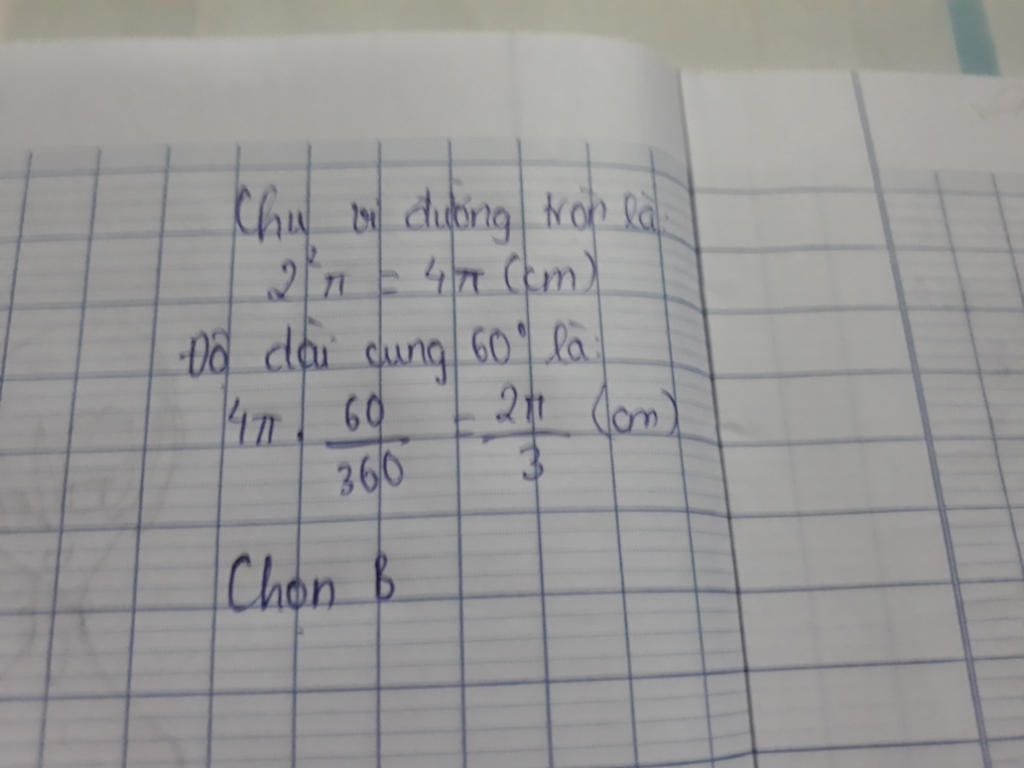 Chu vi đường tròn là:
2²π = 4π (cm)
Độ dài cung 60° là:
4π . 60/360 = 2π/3 (cm)
Chọn B